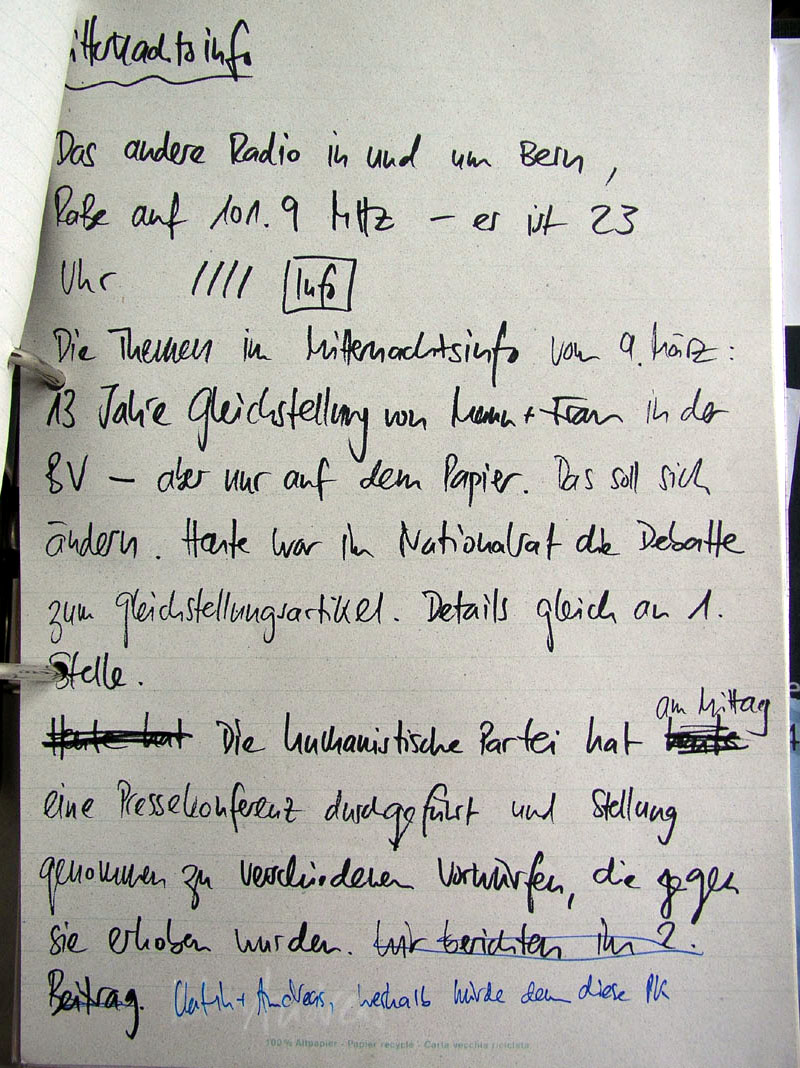 itternachtsinfo
Das andere Radio in und um Bern,
RaBe auf 101.9 MHz – es ist 23
Uhr //// Info
Die Themen im Mitternachtsinfo vom 9. März:
13 Jahre Gleichstellung von Mann + Frau in der
BV – aber nur auf dem Papier. Das soll sich
ändern. Heute war im Nationalrat die Debatte
zum Gleichstellungsartikel. Details gleich an 1.
Stelle.
am Mittag
Heute hat Die humanistische Partei hat heute
eine Pressekonferenz durchgeführt und Stellung
genommen zu verschiedenen Vorwürfen, die gegen
sie erhoben wurden. Wir berichten im 2.
Beitrag. + Andreas, weshalb würde denn diese PK
100% Altpapier - Papier recyclé - Carta vecchia riciclata